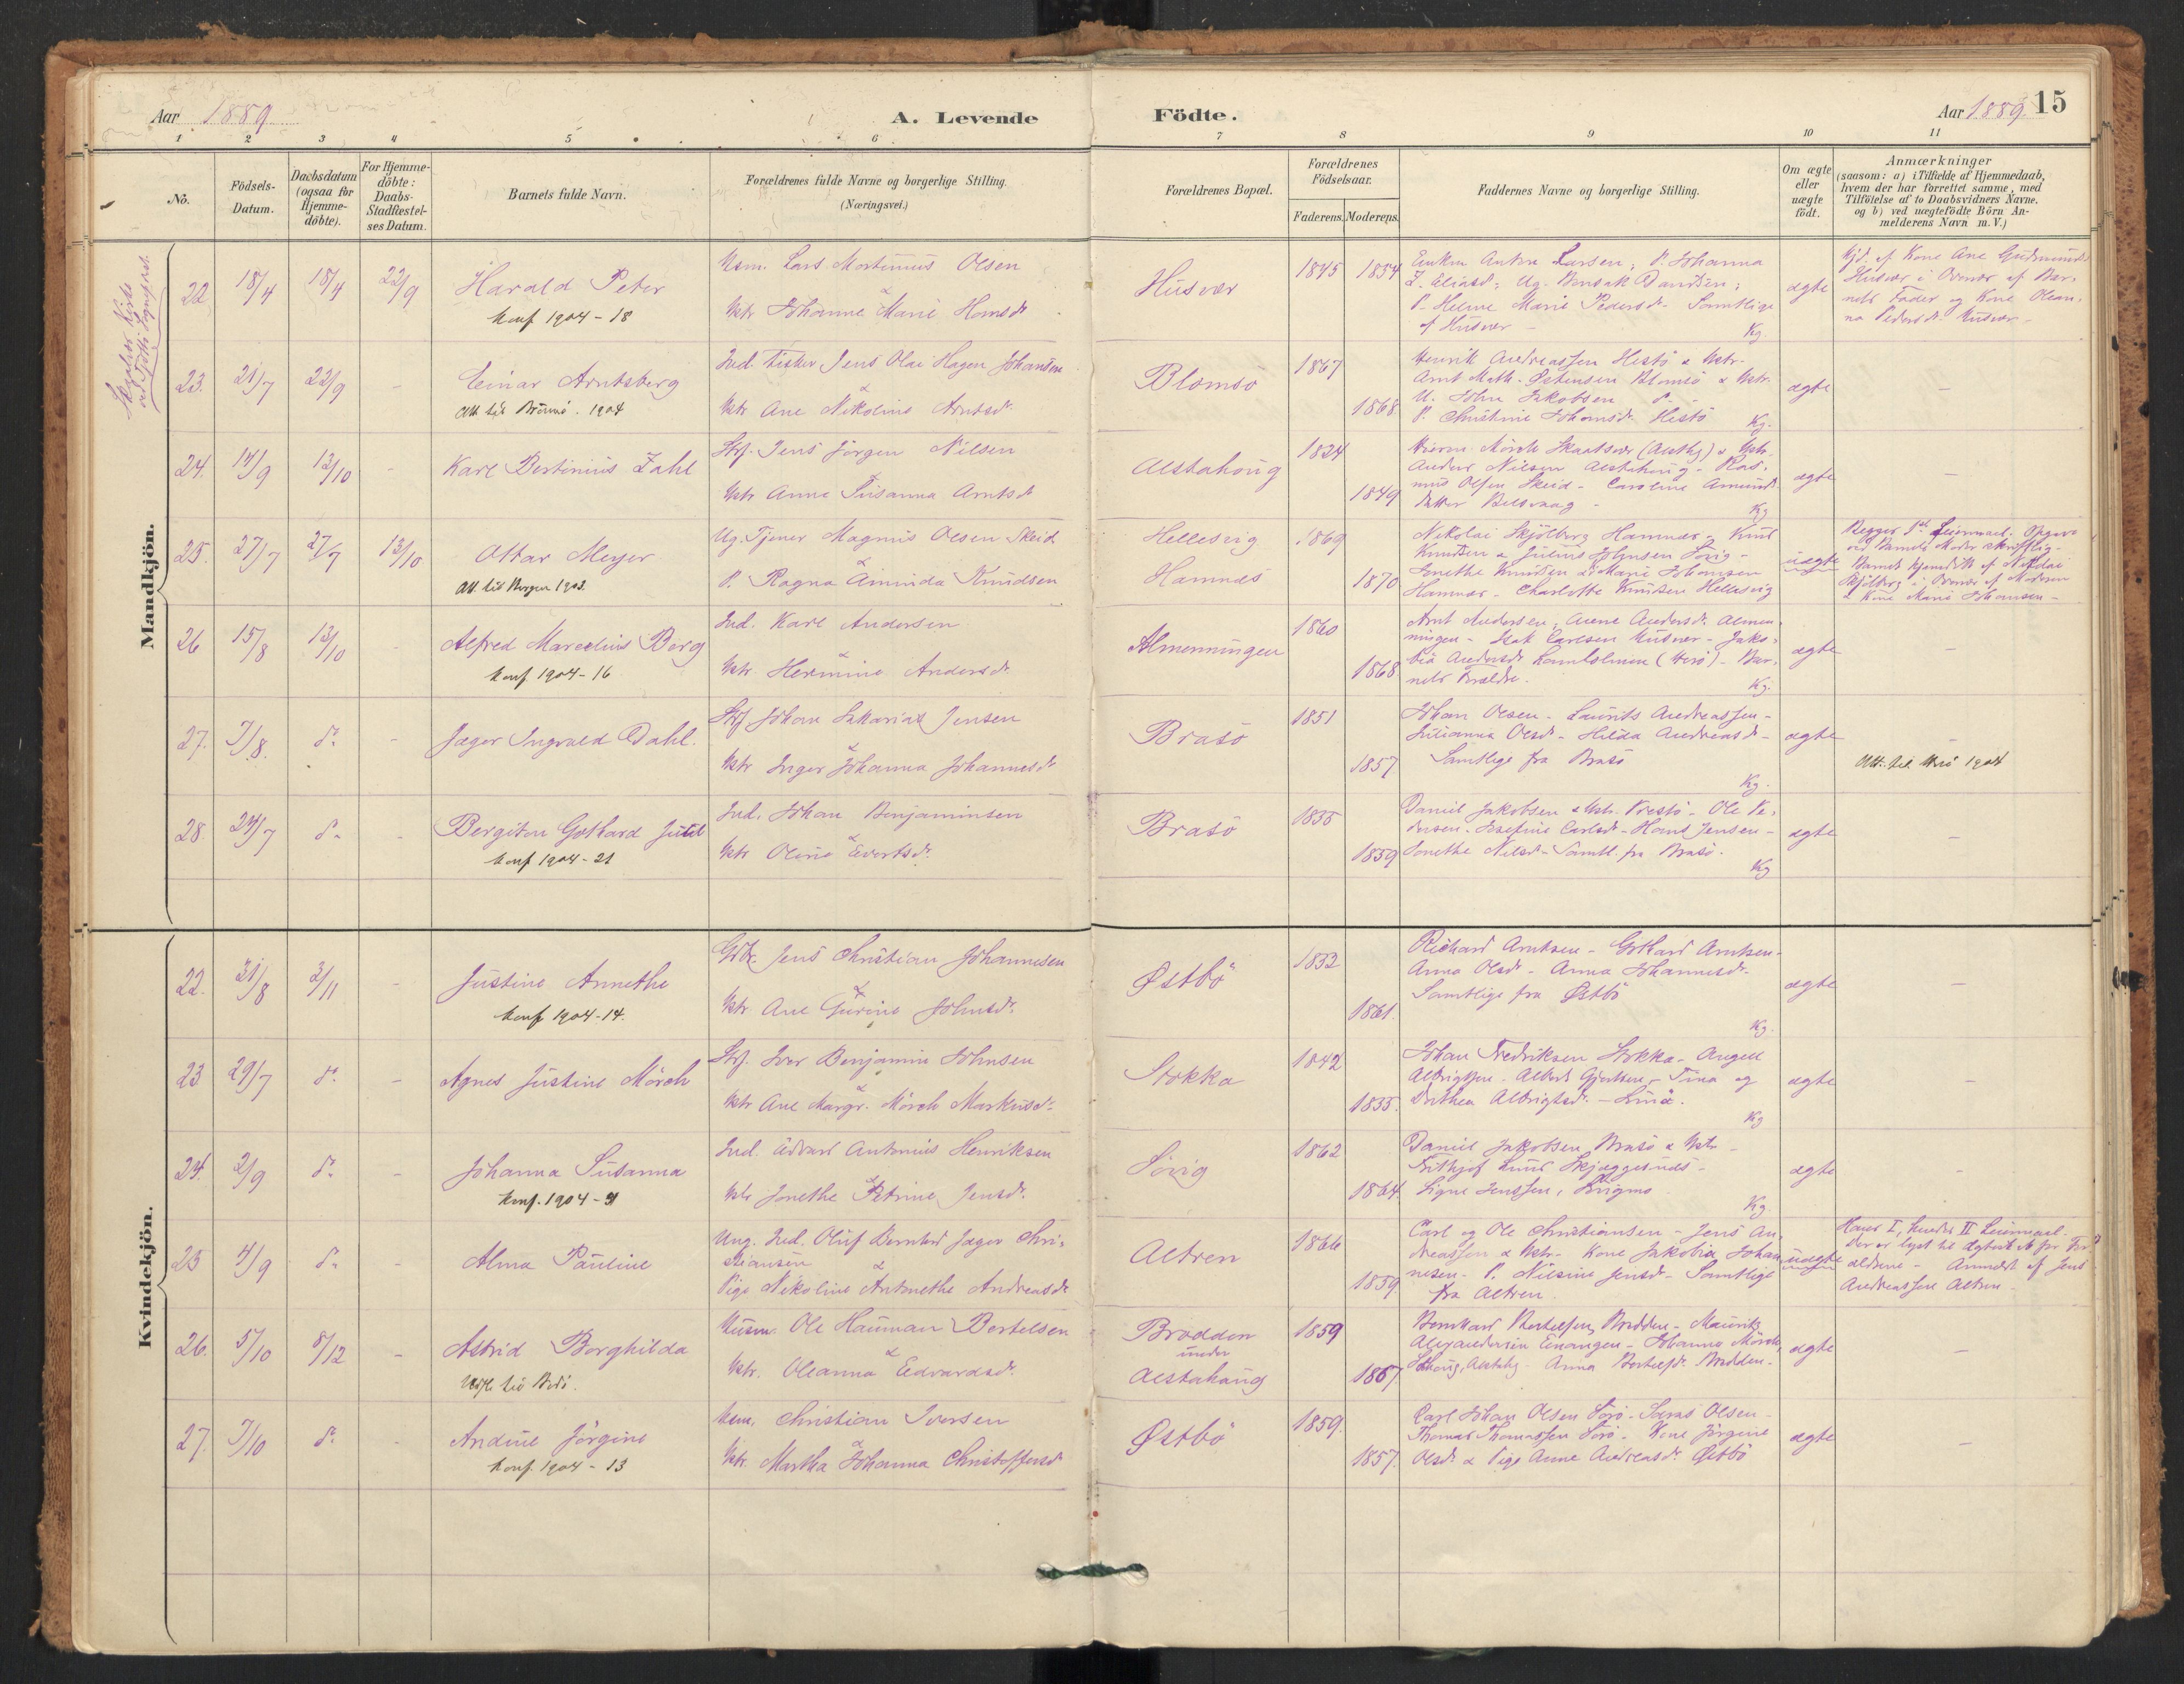 Aar 1889
A. Levende
Födte.
Aar 1889. 15
1 2 3 4 5 6 7 8 9 10 11
No.
Födsels-
Datum.
Daabsdatum
(ogsaa for
Hjemme-
döbte).
For Hjemme-
döbte:
Daabs-
Stadfæstel-
ses Datum.
Barnets fulde Navn.
Forældrenes fulde Navne og borgerlige Stilling.
(Næringsvei.)
Forældrenes Bopæl.
Forældrenes
Födselsaar.
Faderens. Moderens.
Faddernes Navne og borgerlige Stilling.
Om ægte
eller
uægte
födt.
Anmærkninger
(saasom: a) i Tilfælde af Hjemmedaab,
hvem der har forrettet samme, med
Tilföielse af to Daabsvidners Navne,
og b) ved uægtefödte Börn An-
melderens Navn m.V.)
Mandkjön.
22. 18/4 18/4 22/9
Harald Peter
Konf 1904 - 18
Usm. Lars Mortinus Olsen
&
Hstr Johanne Marie Hansdr
Husvær
1845 1854
Enkem Anton Larsen, P. Johanna
P. Helene Marie Pedersdr. Samtlige
af Husvær -
Kg.
ægte
Hjd. af Kone Ane Gudmunds
Husvær i Overvær af Bar-
nets Fader og Kone Olean-
na Pedersdr. Husvær -
23. 21/7 22/9 -
Einar Arntsberg
Att til Brönnö. 1904
Ind. Fisker Jens Olai Hagen Johansen
&
Hstr Ane Nikoline Arntsdr.
Blomsö
1867
1868
Henrik Andreassen Hestö & Hstr.
Arnt Math. Östensen Blomsö & Hstr.
U. John Jakobsen
P. Christine Johansdr. Hestö
Kg.
ægte
-
24. 14/9 13/10 -
Karl Bertinius Zahl
Strf. Jens Jörgen Nilsen
Hstr Anne Susanna Arntsdr
Alstahoug
1824
1849
Anders Nilsen Alstahoug - Ras-
mus Olsen Skeid - Caroline Amunds
datter Belsvaag -
Kg
ægte
-
25. 27/7 27/7 13/10
Ottar Meyer
Att. til Bergen 1903.
Ug. Tjener Magnus Olsen Skeid
P. Ragna Aminda Knudsen
Hellesvig
Hamnes
1869
1870
Nikolai Skjölberg Hamnæs, Knud
Knudsen & Julius Johnsen Sövig -
Jonethe Knudsen & Marie Johansen
Hamnæs - Charlotte Knudsen Hellesvig
uægte
Begges 1ste Leiermaal. Opgave
ved Barnets Moder skriftlig -
Barnet hjemdöbt af Nikolai
Skjölberg i Overvær af Moderen
& Kone Marie Johansen -
26 15/8 13/10
Alfred Marcelius Borg
Konf. 1904 - 16
Ind. Karl Andersen
&
Hstr. Hermine Andersdr.
Almenningen
1860
1868
Arnt Andersen, Anne Andersdr Almen-
ningen - Isak Carlsen Husvær - Jako-
bia Andersdr Lamholmen (Herö) - Bar-
nets Forældre.
Kg.
ægte
-
27. 7/8. do. -
Jæger Ingvald Dahl.
Strf Johan Zakarias Jensen
&
Hstr Inger Johanna Johannesdr
Brasö
1851
1857
Johan Olsen - Laurits Andreassen -
Julianna Olsdr - Hilda Andreasdr -
Samtlige fra Brasö
Kg.
ægte
-
Att: til Herö 1904
28. 24/7 do. -
Bergiton Gothard Juul
Konf 1904 - 21
Ind. Johan Benjaminsen
&
Hstr Oline Evertsdr.
Brasö
1835
1859
Daniel Jakobsen & Hstr. Prestö - Ole Pe-
dersen - Josefine Carlsdr - Hans Jensen -
Jonethe Nilsdr - Samtl. fra Brasö.
Kg
ægte
-
Kvindekjön.
22. 31/8 3/11 -
Justine Annethe
Konf 1904 - 14.
Gbr. Jens Christian Johannesen
&
Hstr Ane Gurine Johnsdr.
Østbö
1833
1861.
Richard Arntsen - Gothard Arntsen -
Anna Olsdr - Anna Johannesdr.
Samtlige fra Østbö
Kg.
ægte
-
23 29/7 do. -
Agnes Justine Mörch
Strf. Iver Benjamin Johnsen
&
Hstr Ane Margr. Mörch Markusdr.
Stokka
1842
1835.
Johan Fredriksen Stokka - Angell
Albrigtsen - Albert Gjertsen - Tina og
Dorthea Albrigtsdr. -
Kg
ægte
-
24. 2/9 do. -
Johanna Susanna
Konf. 1904 - 31
Ind. Edvard Antonius Henriksen
&
Hstr Jonethe Petrine Jensdr.
Sövig
1862
1864.
Daniel Jakobsen Brasö & Hstr -
Frithjof Lund Skjæggesnæs -
Signe Jenssen,
Kg.
ægte
-
25 4/9 do. -
Alma Pauline
Ung. Ind. Oluf Bernhard Jæger Chri-
stiansen
&
Pige Nikoline Antonethe Andreasdr
Altren
1866
1859.
Carl og Ole Christiansen - Jens An-
dreassen & Hstr - Kone Jakobia Johan-
nesen - P. Nilsine Jensdr - Samtlige
fra Altren
uægte
Hans I, hendes II Leiermaal.
Der er lyst til Ægteskab for For-
ældrene - Anmeldt af Jens
Andreassen Altren -
26. 5/10 8/12 -
Astrid Borghilda
til Bodö.
Husm. Ole Hauman Bertelsen
&
Hstr. Oleanna Edvardsdr.
Brodden
under
Alstahaug
1859
1867
Bernhard Bertelsen, Brodden - Maurits
Alexandersen Einangen - Johanna Mörch
Anna Bertelsdr. Brodden.
ægte
-
27. 7/10 do. -
Andine Jörgine
Konf. 1904 - 13
Usm. Christian Iversen
&
Hstr. Martha Johanna Christoffersdr
Østbö
1859.
1857.
Carl Johan Olsen Torö - Olsen -
Thomas Thomassen Torö - Kone Jörgine
Olsdr & Pige Anne Andreasdr. Østbö
ægte
-